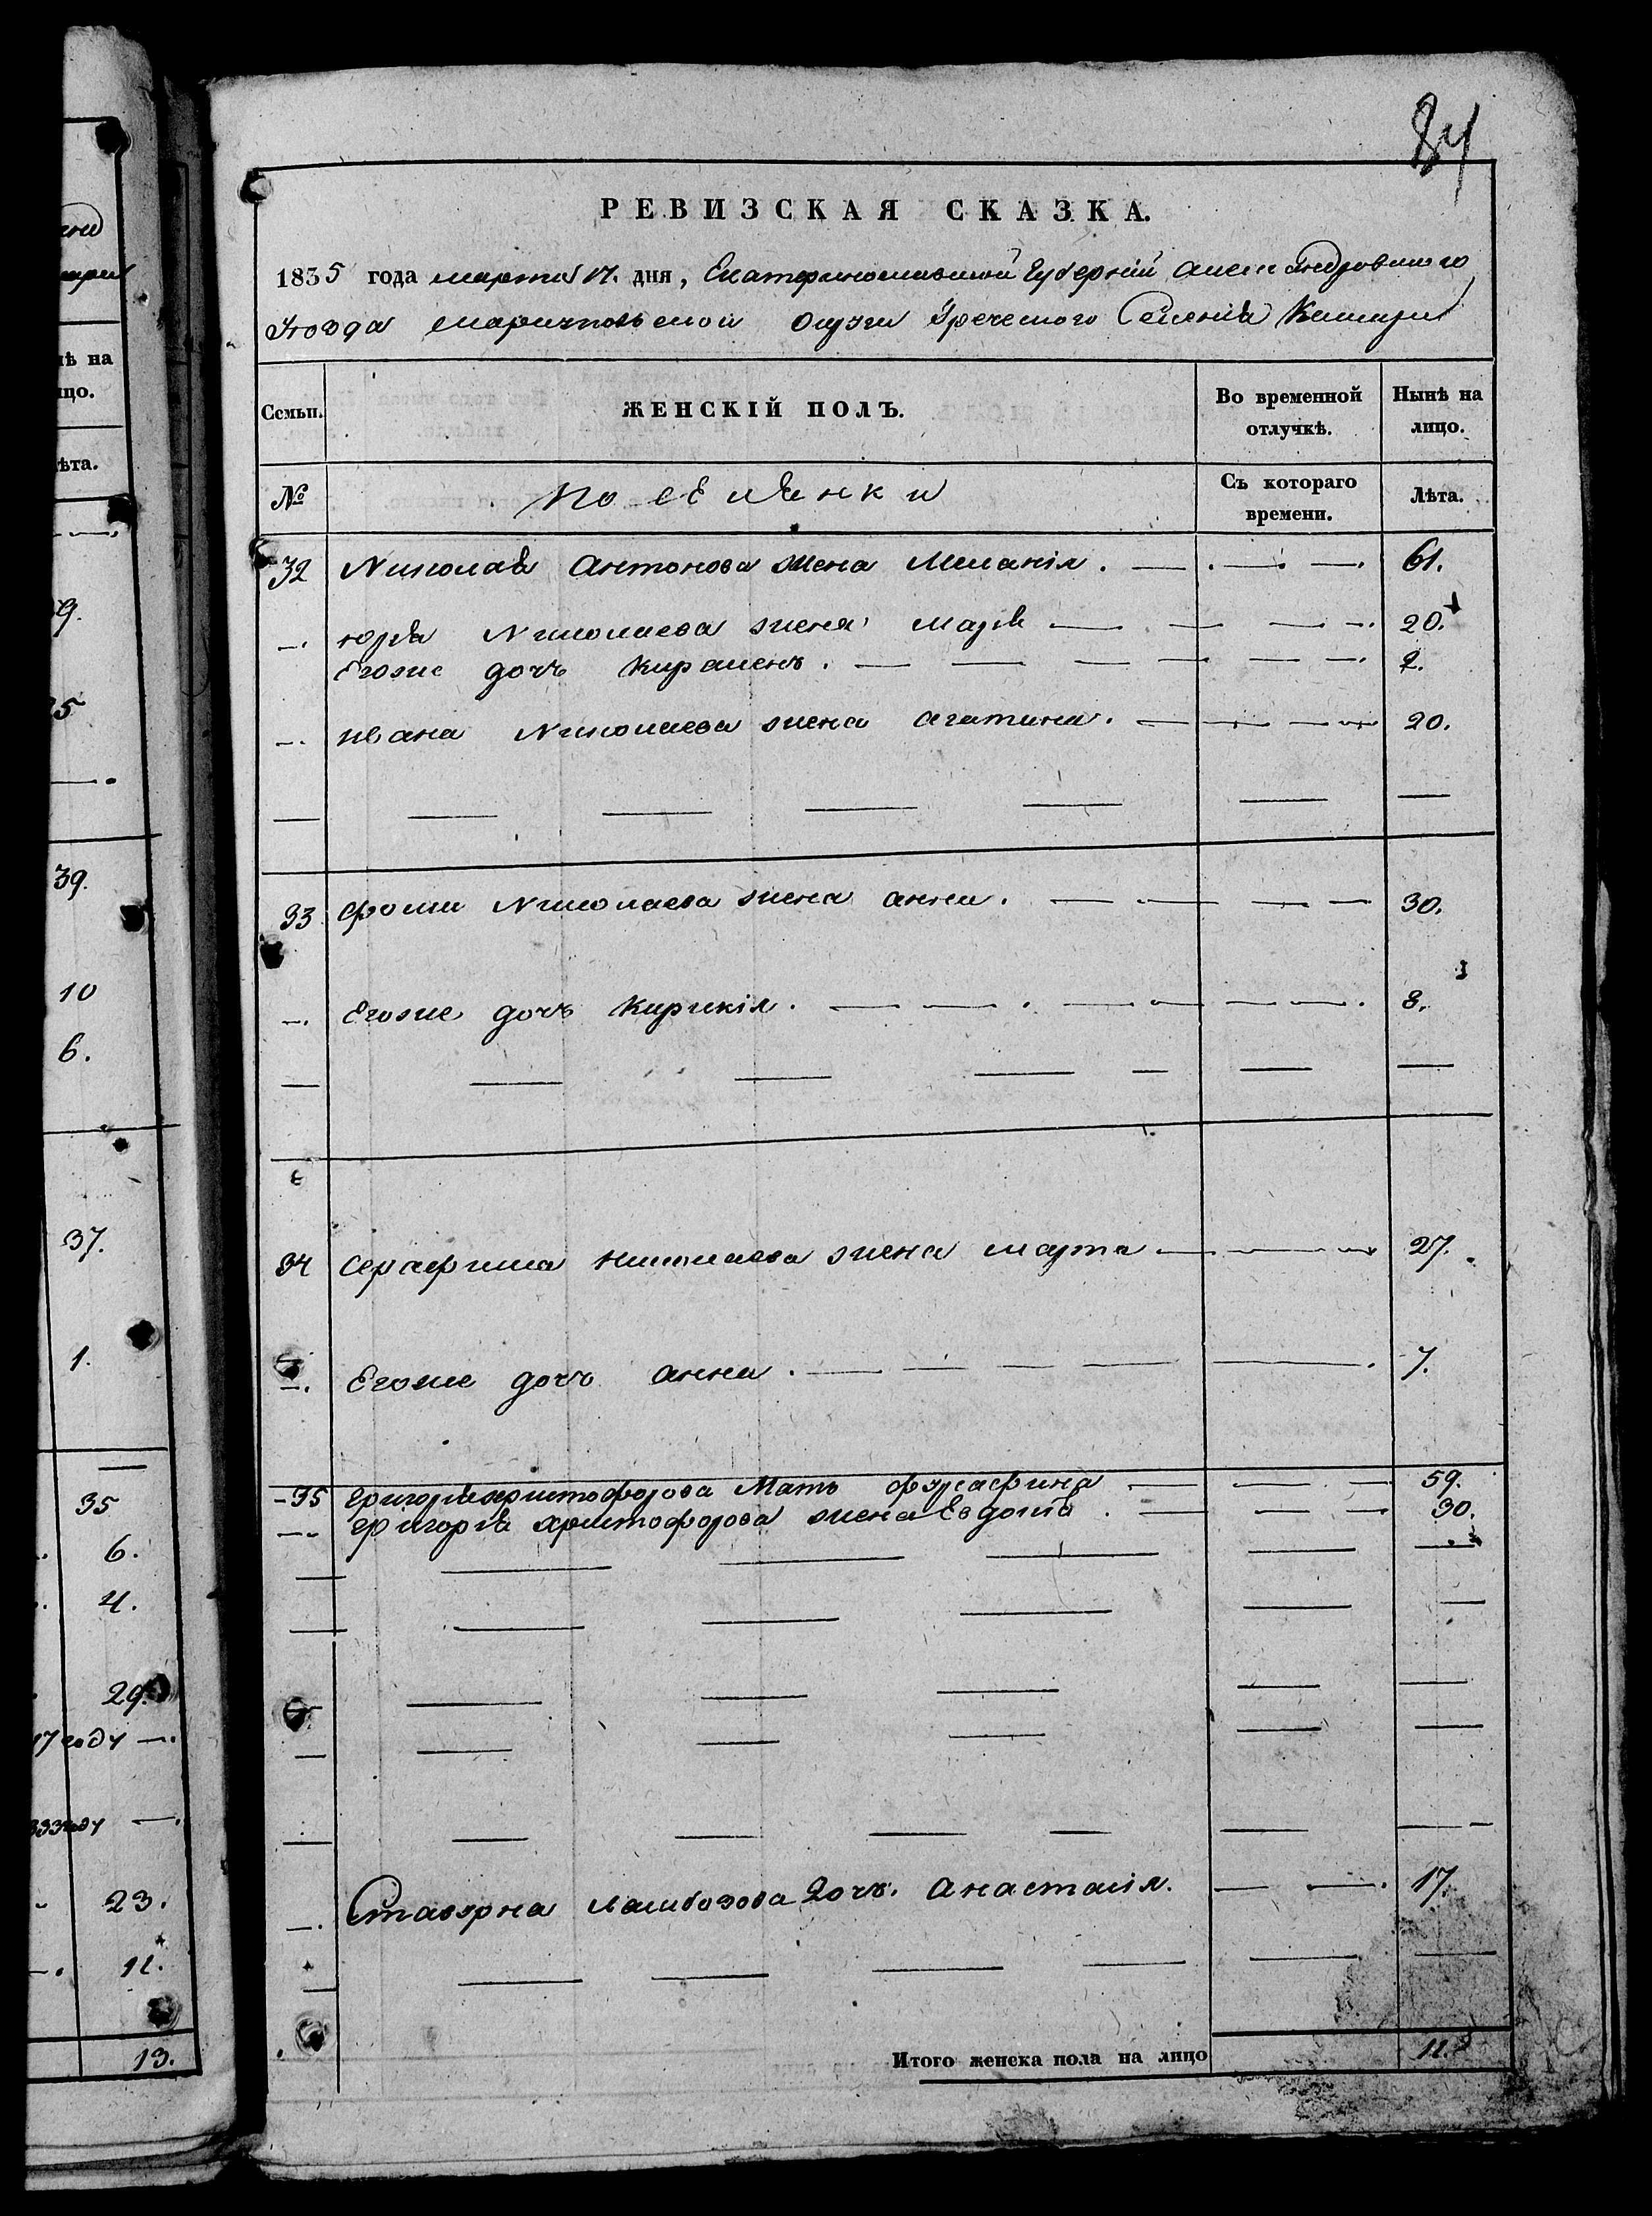 84
РЕВИЗСКАЯ СКАЗКА.
1835 года марта 17. дня, Екатеринославской Губерній Александровскаго
Уезда Мариупольской округи Греческого Селенія
Семьи.
ЖЕНСКІЙ ПОЛЪ.
Во временной отлучкѣ.
Нынѣ на лицо.
№
Поселянки
Съ котораго времени.
Лѣта.
32 Николая Антонова жена Меланія. 61.
Юрія Николаева жена Марія 20.
Егоже дочь 2.
Ивана Николаева жена 20.
33 Фомы Николаева жена анна. 30.
Егоже дочь Кирикія. 8.
34 Серафима Николаева жена Марта 27.
Егоже дочь анна. 7.
35 Григорія христофорова Мать 59.
Григорія христофорова жена Евдокія. 30.
дочь. Анастасія. 17.
Итого женска пола на лицо 11.
нѣ на
цо.
ѣта.
39.
10
6.
37.
1.
35
6.
4.
29.
17 году
333 году
23.
11.
13.